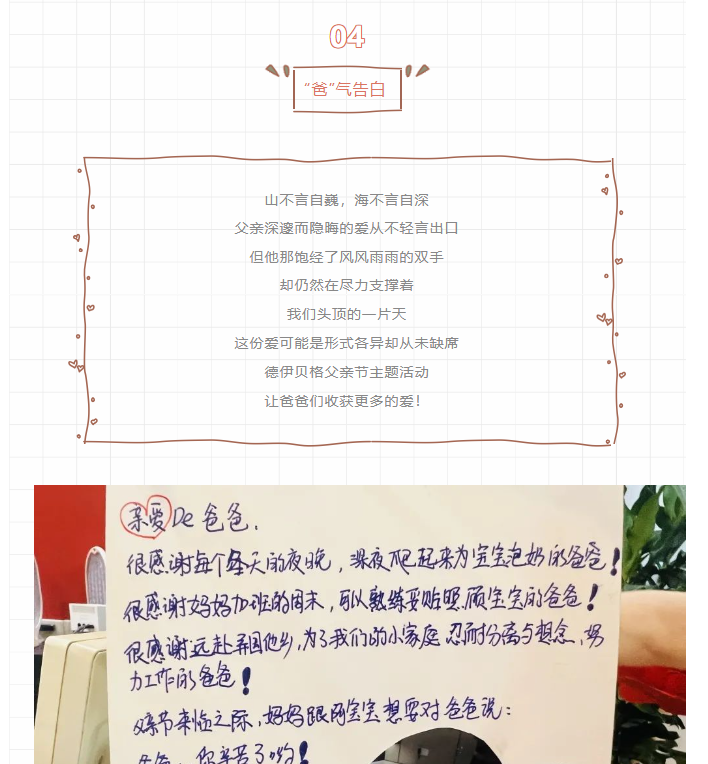 04
“爸”气告白
山不言自巍，海不言自深
父亲深邃而隐晦的爱从不轻言出口
但他那饱经了风风雨雨的双手
却仍然在尽力支撑着
我们头顶的一片天
这份爱可能是形式各异却从未缺席
德伊贝格父亲节主题活动
让爸爸们收获更多的爱！
亲爱De爸爸.
很感谢每个每天的夜晚，深夜爬起来为宝宝泡奶的爸爸！
很感谢妈妈加班的周末，可以熟练妥贴照顾宝宝的爸爸！
很感谢远赴异国他乡，为了我们的小家庭忍耐分离与想念，努
力工作的爸爸！
父亲节来临之际，妈妈跟两宝宝想要对爸爸说：
爸爸，你辛苦了哟！